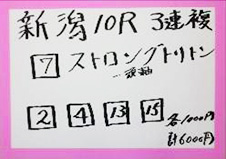 新潟10R 3連複
7 ストロングトリトン
一頭軸
2 4 13 15 各1000円
計6000円